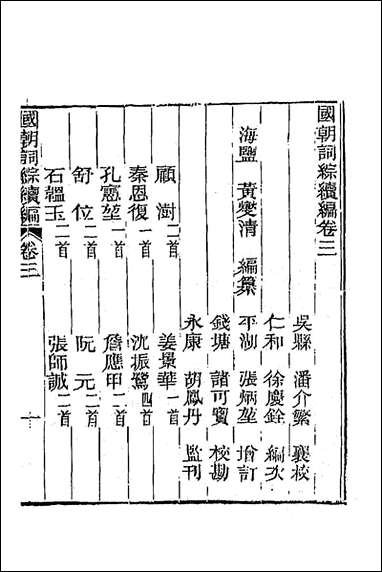 國朝詞綜續編卷三
吳縣 潘介繁 襄校
仁和 徐慶銓 編次
海鹽 黃燮清 編纂 平湖 張炳堃 增訂
錢塘 諸可寶 校勘
永康 胡鳳丹 監刊
顧澍 二首 姜景華 一首
秦恩復 一首 沈振鷺 四首
孔憲堃 一首 詹應甲 二首
舒位 二首 阮元 二首
石韞玉 二首 張師誠 二首
國朝詞綜續編 卷三 一